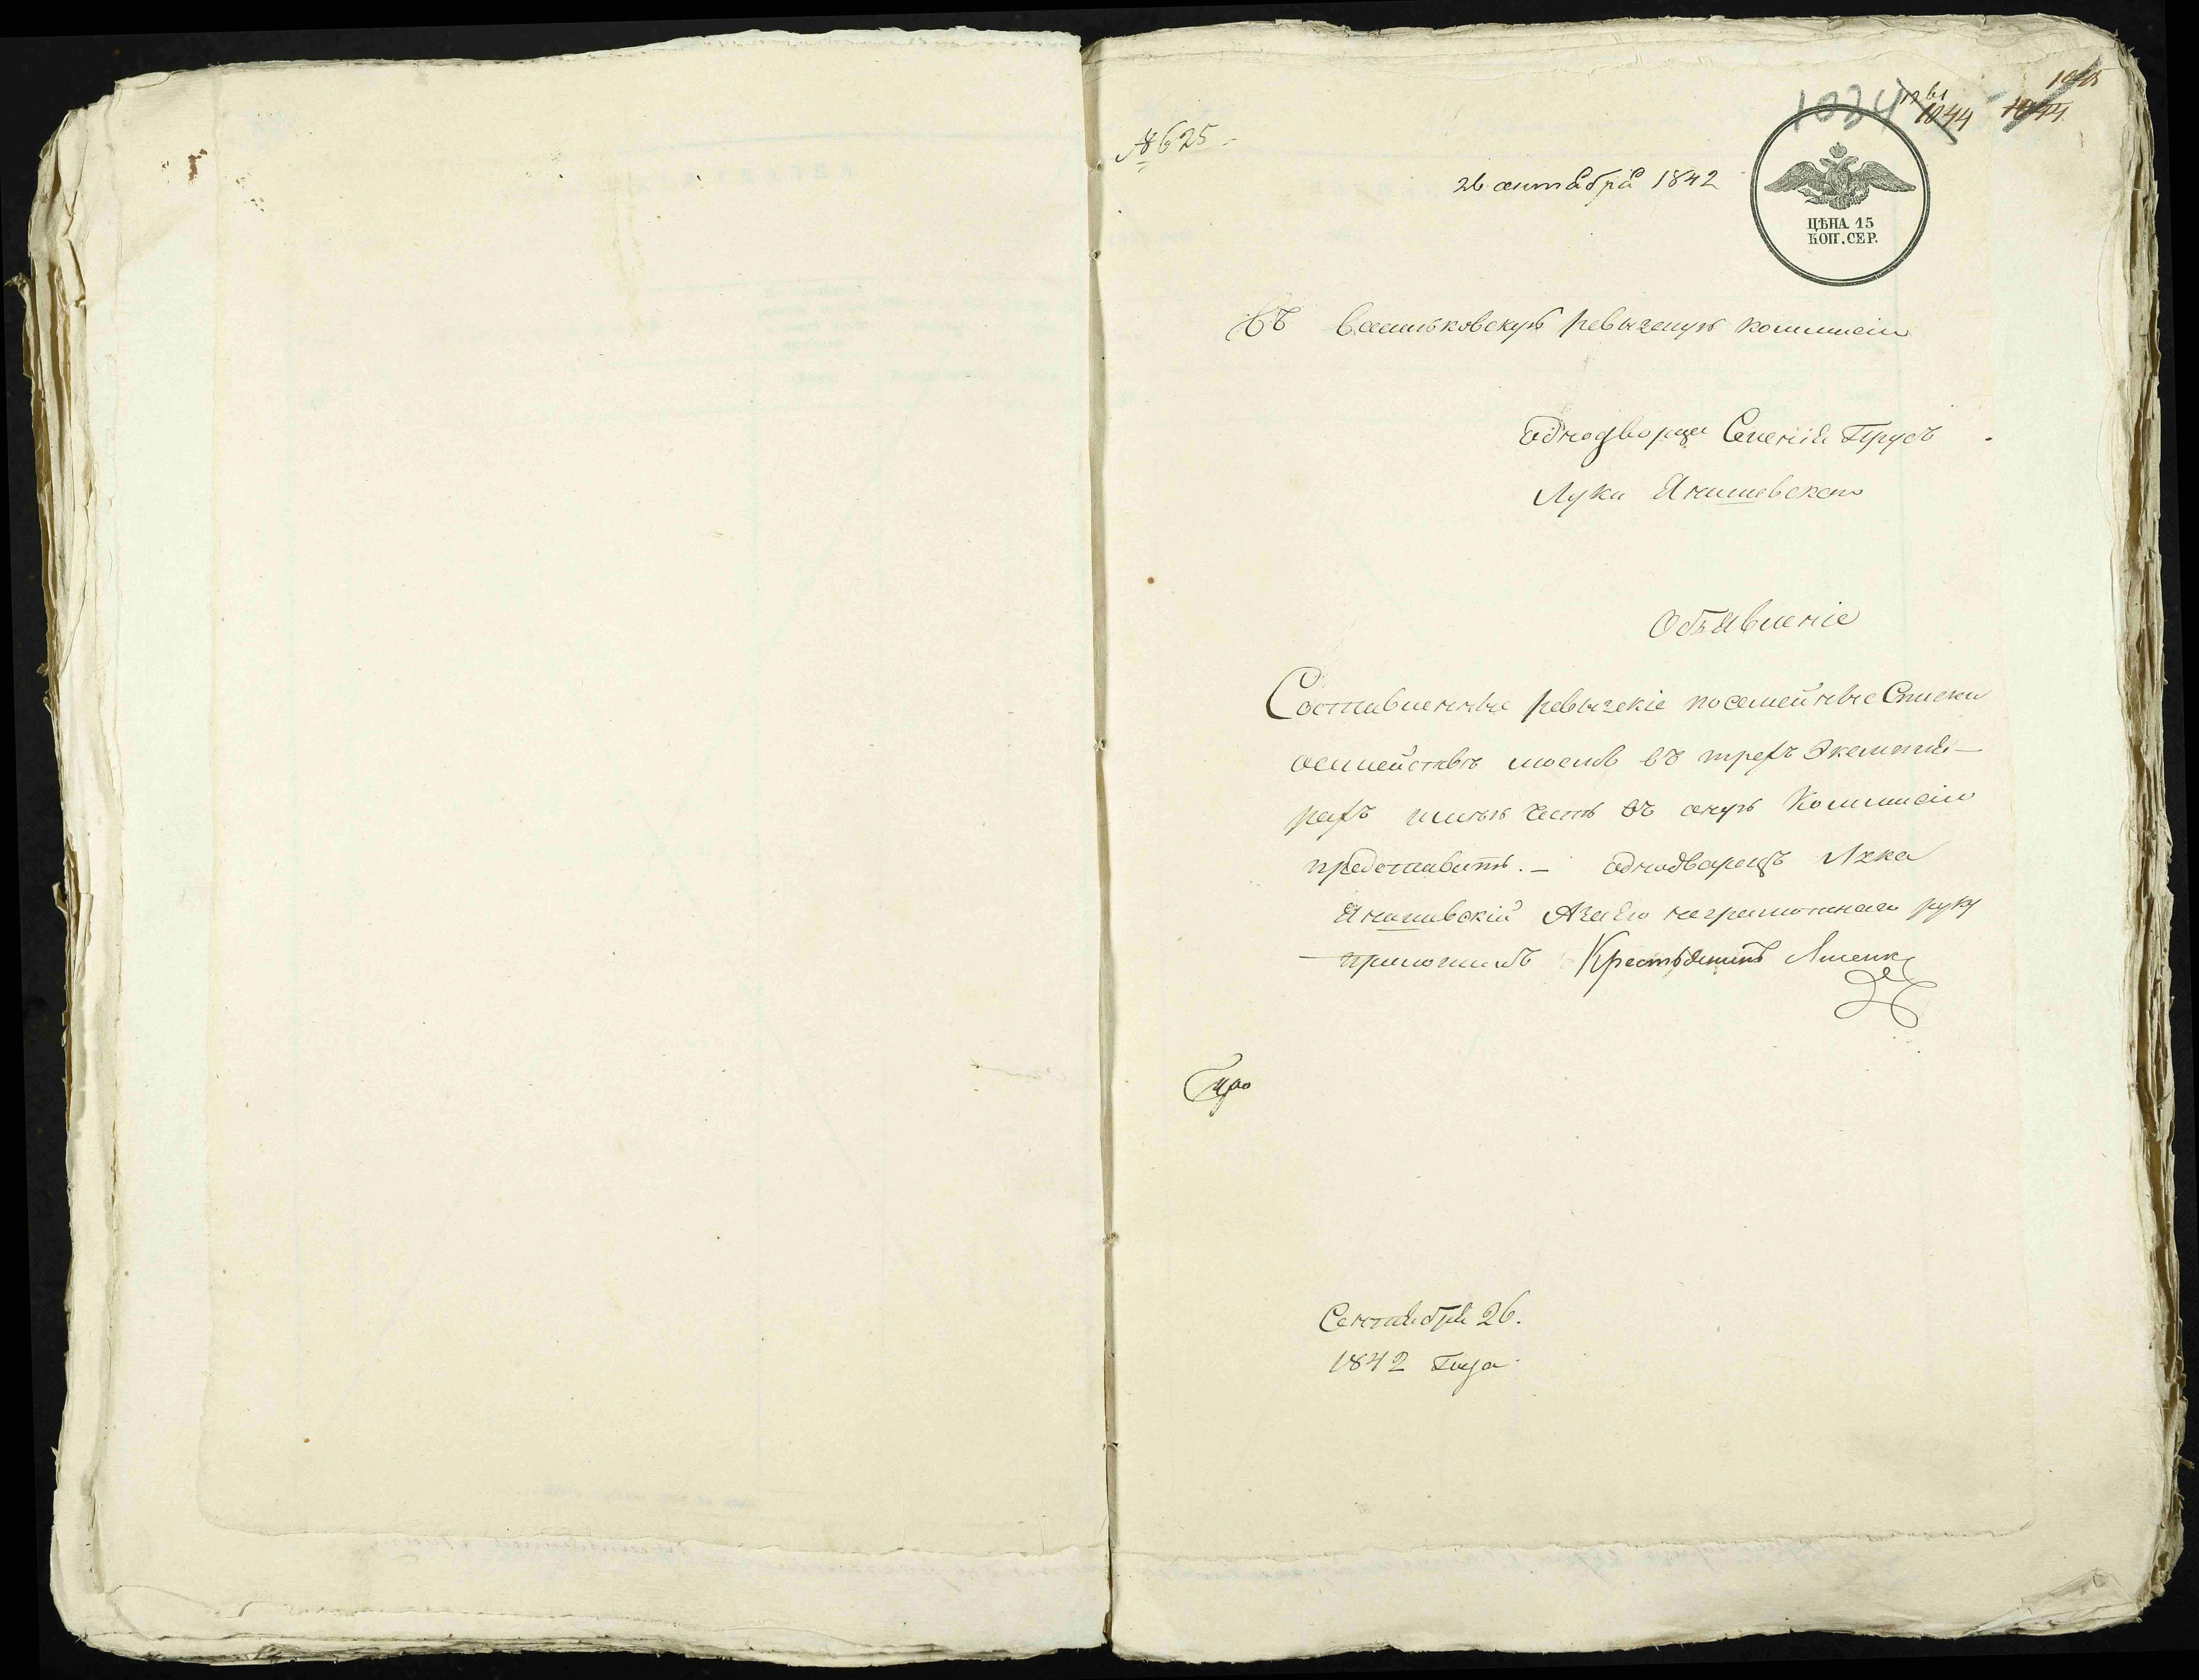 1034
1261
1044
1044
1045
№ 625
26 сентября 1842
ЦѢНА 15
КОП. СЕР.
Въ Васильковскую ревызскую коммисію
однодворца Селенія Трусъ
Луки Янишевского
Объявленіе
Составленные ревызскіе посемейные Списки
осемействѣ моемъ въ трехъ Экземпля-
рахъ имѣю честь въ оную Коммисію
представить. — однодварецъ Лука
Янишевскій Азаего неграмотнаго руку
приложилъ Крестьянинъ
Сентября 26.
1842 Года